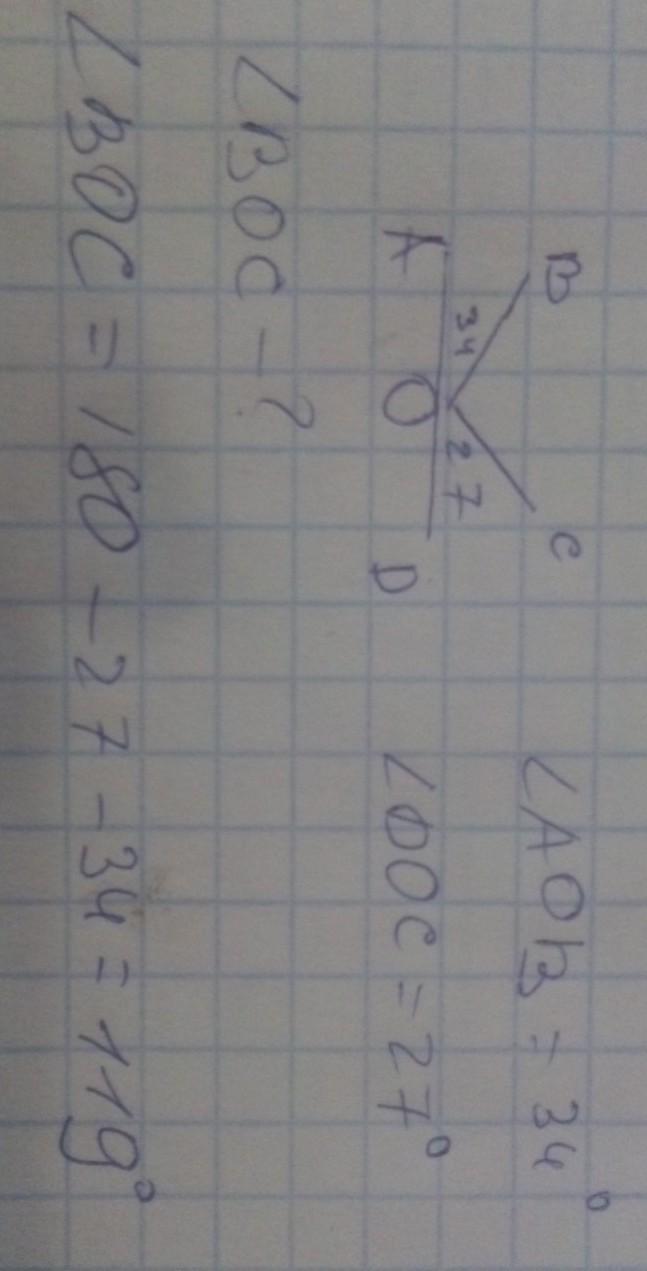 B C
34 27
A O D
∠AOB = 34°
∠DOC = 27°
∠BOC - ?
∠BOC = 180 - 27 - 34 = 119°